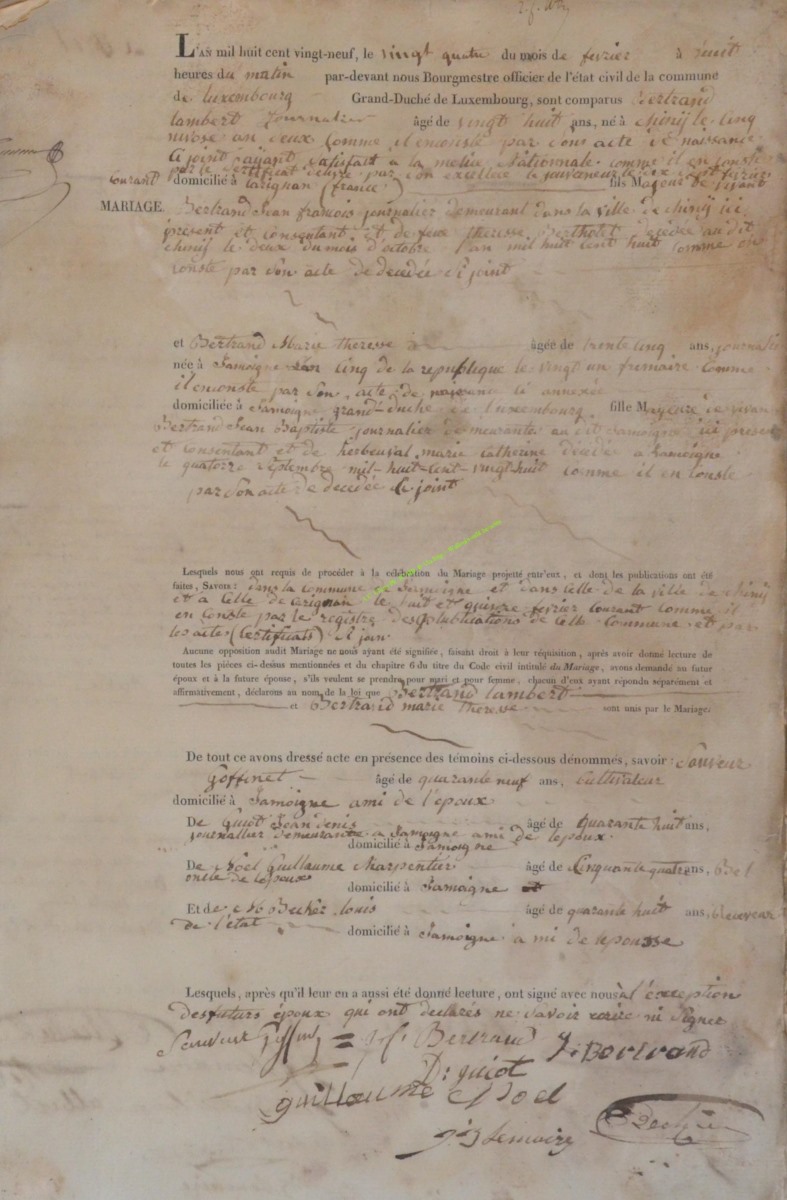 L'AN mil huit cent vingt-neuf, le vingt quatre du mois de fevrier à huit
heures du matin par-devant nous Bourgmestre officier de l'état civil de la commune
de luxembourg Grand-Duché de Luxembourg, sont comparus Bertrand
lambert journalier âgé de vingt huit ans, né à chinij le cinq
nivose an deux comme il enconste par sons acte de naissance
Ci joint ayant satisfait a la melice Nationnale comme il en conste
par le certificat delivré par son excellence le gouverneur le dix sept fevrier
Courant domicilié à Carignan (france) fils Majeur de vivant
MARIAGE. Bertrand Jean francois journalier demeurant dans la ville de chinij ici
present et consentant et de feue theresse Bertholet decedée audit
chinij le deux du mois d'octobre l'an mil huit cent huit comme on
conste par son acte de decedée Ci joint
et Bertrand Marie theresse âgée de trente cinq ans, journaliere
née à Jamoigne l'an cinq de la republique le vingt un frimaire comme
il enconste par son acte de naissance ci annexée
domiciliée à Jamoigne grand-duché de luxembourg fille Majeure de vivant
Bertrand Jean Baptiste journalier demeurantes au dit Jamoigne ici present
et consentant et de herbeuval marie catherine décedée a Jamoigne
le quatorze septembre mil-huit-cent-vingt-huit comme il en conste
par son acte de decedée Ci joint
Lesquels nous ont requis de procéder à la célébration du Mariage projetté entr'eux, et dont les publications ont été
faites, SAVOIR: dans la commune de Jamoigne et dans celle de la ville de chinij
et a Celle de carignan le huit et quinze fevrier courant comme il
en conste par le registre des publications de Celle commune et par
les actes (certificats) Ci join
Aucune opposition audit Mariage ne nous ayant été signifiée, faisant droit à leur réquisition, après avoir donné lecture de
toutes les pièces ci-dessus mentionnées et du chapitre 6 du titre du Code civil intitulé du Mariage, avons demandé au futur
époux et à la future épouse, s'ils veulent se prendre pour mari et pour femme, chacun d'eux ayant répondu séparément et
affirmativement, déclarons au nom de la loi que Bertrand lambert
et Bertrand marie theresse sont unis par le Mariage.
De tout ce avons dressé acte en présence des témoins ci-dessous dénommés, savoir: Sauveur
goffinet âgé de quarante neuf ans, cultivateur
domicilié à Jamoigne ami de l'epoux
De Guiot Jean denis âgé de quarante huit ans,
journallier demeurante a Jamoigne ami de lepoux
domicilié à Jamoigne
De Noël Guillaume charpentier âgé de Cinquante quatre ans, Bel
oncle de lepoux
domicilié à Jamoigne
Et de Becher louis âgé de quarante huit ans, Receveur
de l'état domicilié à Jamoigne ami de lepousse
Lesquels, après qu'il leur en a aussi été donné lecture, ont signé avec nous à l'exception
des futurs époux qui ont declarés ne savoir ecrire ni signer
Sauveur Goffinet J f Bertrand J. Bertrand
D: guiot
guillaume Noel
J B Lemoire